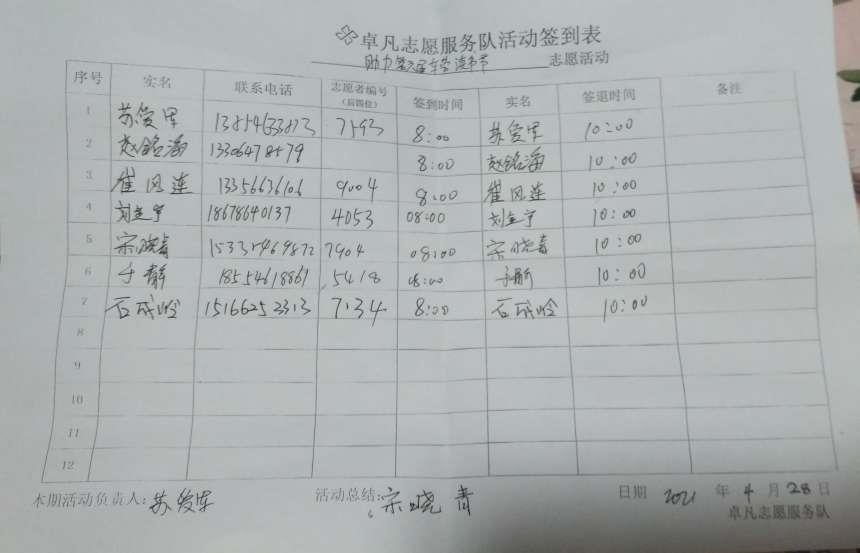 卓凡志愿服务队活动签到表
助力第 届 读书节 志愿活动
序号 实名 联系电话 志愿者编号(后四位) 签到时间 实名 签退时间 备注
1 苏俊军 13854633873 7593 8:00 苏俊军 10:00
2 赵铭海 13306478579 8:00 赵铭海 10:00
3 崔风莲 13356636106 9004 8:00 崔风莲 10:00
4 18678640137 4053 08:00 10:00
5 宋晓青 15335469872 7904 08:00 宋晓青 10:00
6 于静 18554618861 5418 08:00 于静 10:00
7 石成岭 15166252313 7134 8:00 石成岭 10:00
8
9
10
11
12
本期活动负责人: 苏俊军 活动总结: 宋晓青 日期 2021 年 4 月 28 日
卓凡志愿服务队